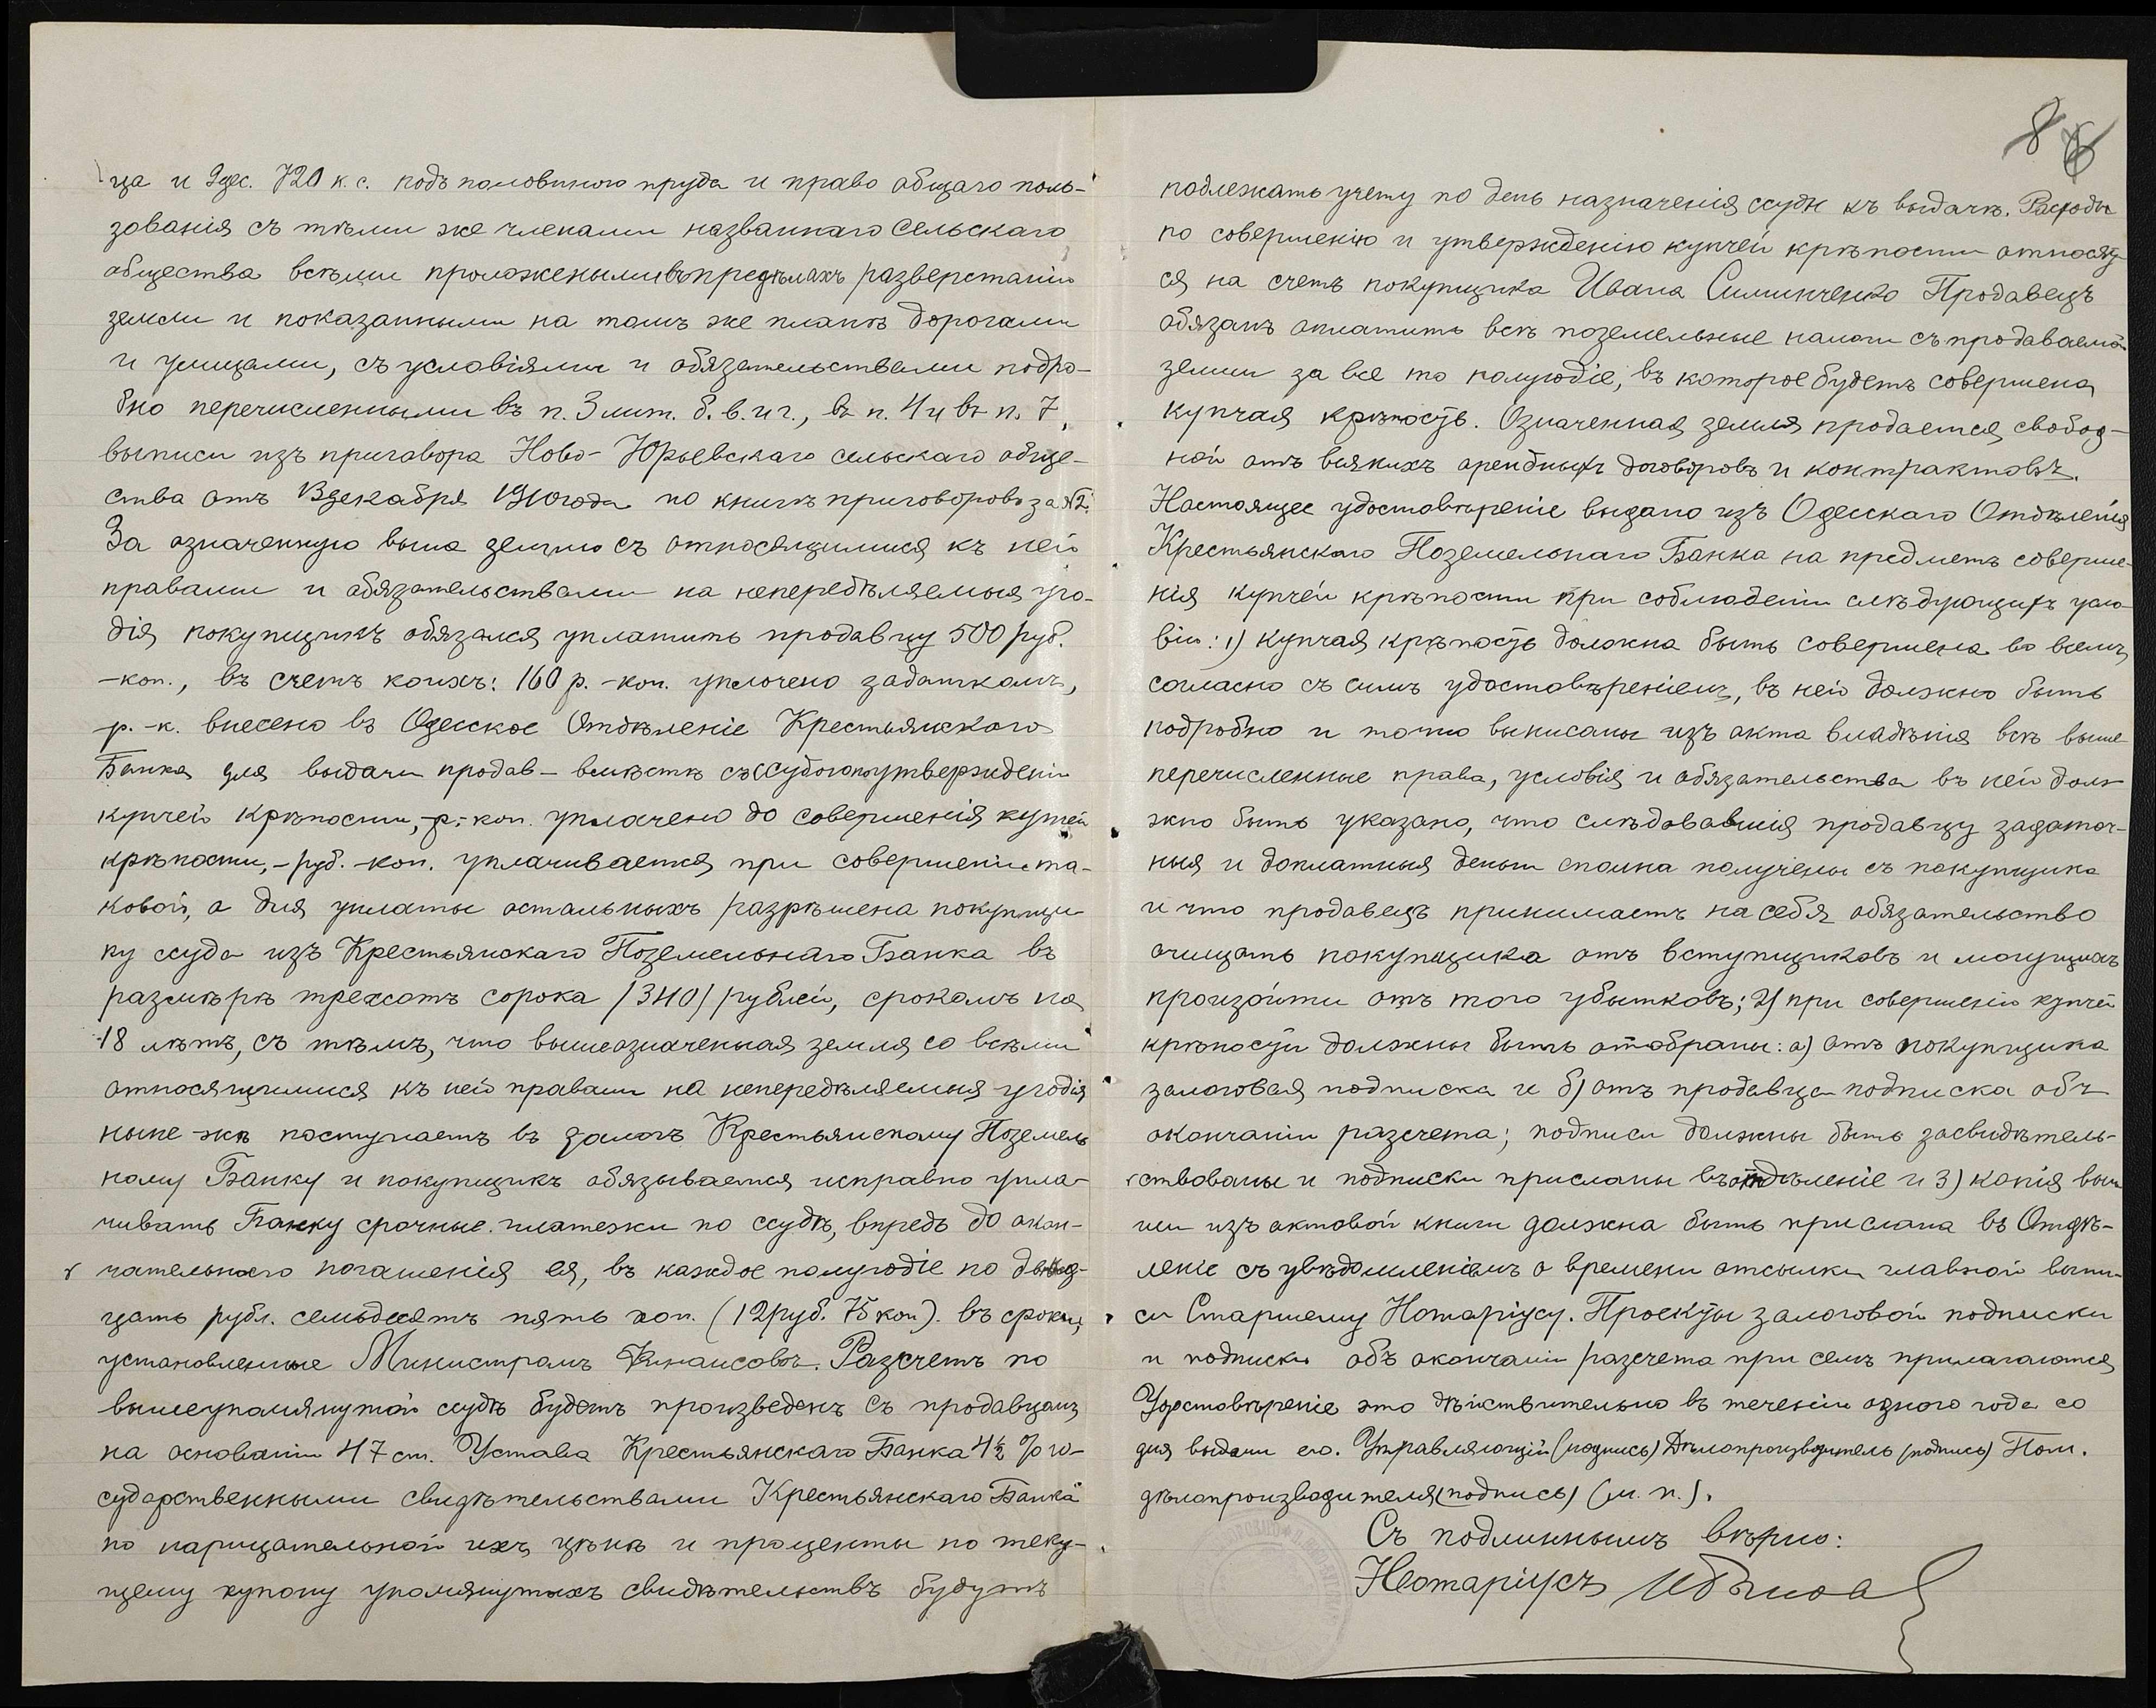 8
ца и 9 дес. 720 к. с. подъ половиною пруда и право общаго поль-
зованія съ тѣми же членами названнаго сельскаго
общества всѣми проложеными въ предѣлахъ разверстанія
земли и показанными на томъ же планѣ дорогами
и улицами, съ условіями и обязательствами подро-
бно перечисленными въ п. 3 лит. б. в. и г., въ п. 4 и въ п. 7,
выписи изъ приговора Ново-Юрьевскаго сельскаго обще-
ства отъ 13 декабря 1910 года по книгѣ приговоровъ за №2.
За означенную выше землю съ относящимися къ ней
правами и обязательствами на непередѣляемыя уго-
дія покупщикъ обязался уплатить продавцу 500 руб.
-коп., въ счетъ коихъ: 160 р. -коп. уплочено задаткомъ,
-р. -к. внесено въ Одесское Отдѣленіе Крестьянскаго
Банка для выдачи продав- вмѣстѣ съ ссудою по утвержденіи
купчей крѣпости, -р. -коп. уплачено до совершенія купчей
крѣпости, -руб. -коп. уплачивается при совершеніи та-
ковой, а для уплаты остальныхъ разрѣшена покупщи-
ку ссуда изъ Крестьянскаго Поземельнаго Банка въ
размѣрѣ трехсотъ сорока /340/ рублей, срокомъ на
18 лѣтъ, съ тѣмъ, что вышеозначенная земля со всѣми
относящимися къ ней правами на непередѣляемыя угодія
ныне-же поступаетъ въ залогъ Крестьянскому Поземель
ному Банку и покупщикъ обязывается исправно упла-
чивать Банку срочные платежи по ссудѣ, впредь до окон-
чательнаго погашенія ея, въ каждое полугодіе по двѣнад-
цать рубл. семьдесятъ пять коп. (12 руб. 75 коп). въ сроки,
установленные Министромъ Финансовъ. Разсчетъ по
вышеупомянутой ссудѣ будетъ произведенъ съ продавцомъ
на основаніи 47 ст. Устава Крестьянскаго Банка 4½ % го-
сударственными свидѣтельствами Крестьянскаго Банка
по нарицательной ихъ цѣнѣ и проценты по теку-
щему купону упомянутыхъ свидѣтельствъ будутъ
подлежать учету по день назначенія ссуды къ выдачѣ. Расходы
по совершенію и утвержденію купчей крѣпости относят
ся на счетъ покупщика Ивана Симинченко Продавецъ
обязанъ оплатить всѣ поземельные налоги съ продаваемой
земли за все то полугодіе, въ которое будетъ совершена
купчая крѣпость. Означенная земля продается свобод-
ной отъ всякихъ арендныхъ договоровъ и контрактовъ.
Настоящее удостовѣреніе выдано изъ Одесскаго Отдѣленія
Крестьянскаго Поземельнаго Банка на предметъ соверше-
нія купчей крѣпости при соблюденіи слѣдующихъ усло-
вій: 1) купчая крѣпость должна быть совершена во всемъ
согласно съ симъ удостовѣреніемъ, въ ней должно быть
подробно и точно выписаны изъ акта владѣнія всѣ выше
перечисленные права, условія и обязательства въ ней долж
жно быть указано, что слѣдовавшія продавцу задаточ-
ныя и доплатныя деньги сполна получены съ покупщика
и что продавецъ принимаетъ на себя обязательство
очищать покупщика отъ вступщиковъ и могущихъ
произойти отъ того убытковъ; 2) при совершеніи купчей
крѣпости должны быть отобраны: а) отъ покупщика
залоговая подписка и б) отъ продавца подписка объ
окончаніи разсчета; подписи должны быть засвидѣтель-
ствованы и подписки присланы въ отдѣленіе и 3) копія вып
иси изъ актовой книги должна быть прислана въ Отдѣ-
леніе съ увѣдомленіемъ о времени отсылки главной выпи-
си Старшему Нотаріусу. Проекты залоговой подписки
и подписки объ окончаніи разсчета при семъ прилагаются
Удостовѣреніе это дѣйствительно въ теченіи одного года со
дня выдачи его. Управляющій (подпись) Дѣлопроизводитель (подпись) Пом.
дѣлопроизводителя (подпись) (м. п.).
Съ подлиннымъ вѣрно:
Нотаріусъ